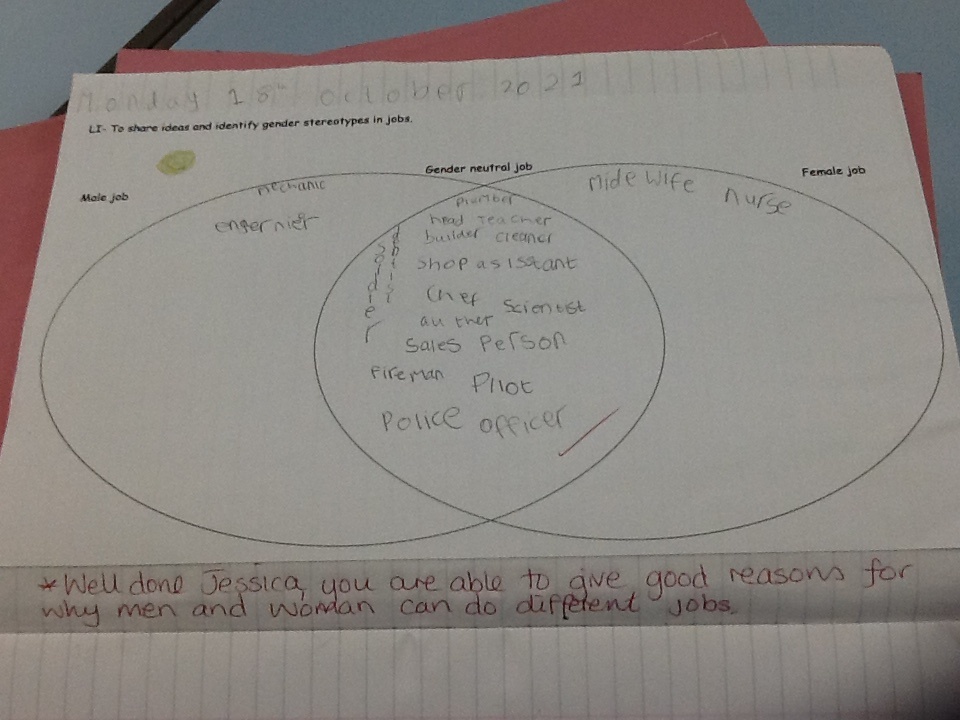 Monday 18th october 2021
LI- To share ideas and identify gender stereotypes in jobs.
Male job
Gender neutral job
Female job
mechanic
engernier
plumber
head teacher
builder cleaner
shop asisstant
Chef Scientist
auther
Sales Person
Fireman Pilot
Police officer
soldier
mide wife
nurse
*Well done Jessica, you are able to give good reasons for
why men and woman can do different jobs.